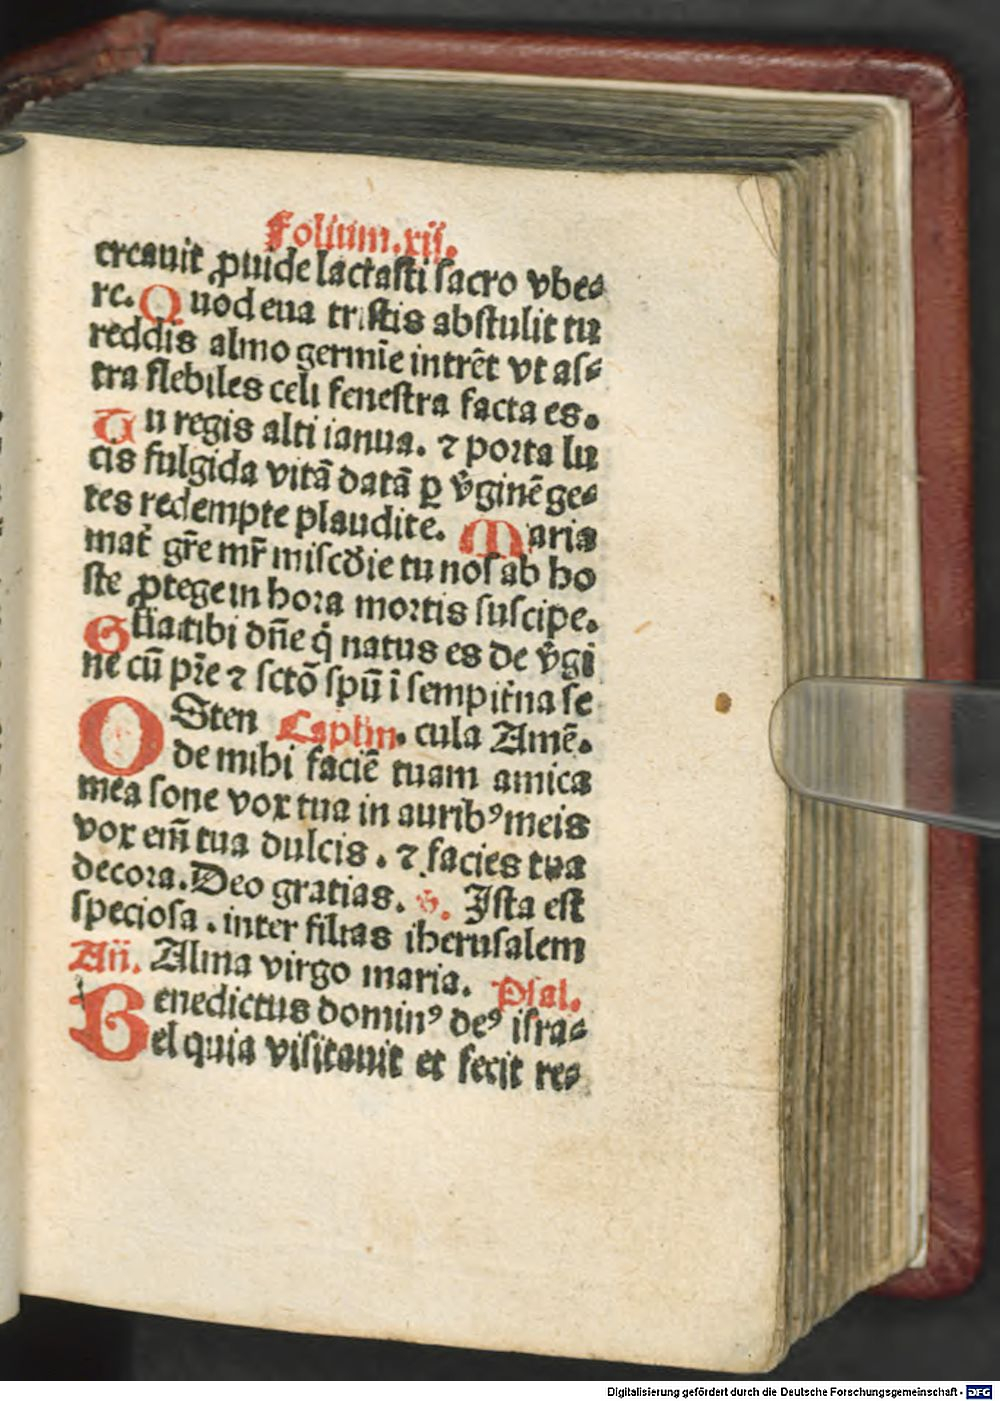 Folium.xij.
ercauit ꝓuide lactasti sacro vbe⸗
re. Quod eua tristis abstulit tu
reddis almo germīe intrēt vt as⸗
tra flebiles celi fenestra facta es.
Tu regis alti ianua. ⁊ porta lu
cis fulgida vitā datā ꝑ v̓ginē ge⸗
tes redempte plaudite. Maria
mat̓ gr̄e mr̄ miscd̄ie tu nos ab ho
ste ꝓtege in hora mortis suscipe.
Gl̄ia tibi dn̄e q̓ natus es de v̓gi
ne cū pr̄e ⁊ sctō spū ī sempit̓na se
OSten Capl̄m. cula Amē.
de mihi faciē tuam amica
mea sone vox tua in auribꝰ meis
vox em̄ tua dulcis. ⁊ facies tua
decora. Deo gratias. v̓. Ista est
speciosa. inter filias iherusalem
Añ. Alma virgo maria. Psal.
Benedictus dominꝰ deꝰ isra⸗
el quia visitauit et fecit re⸗
Digitalisierung gefördert durch die Deutsche Forschungsgemeinschaft - DFG